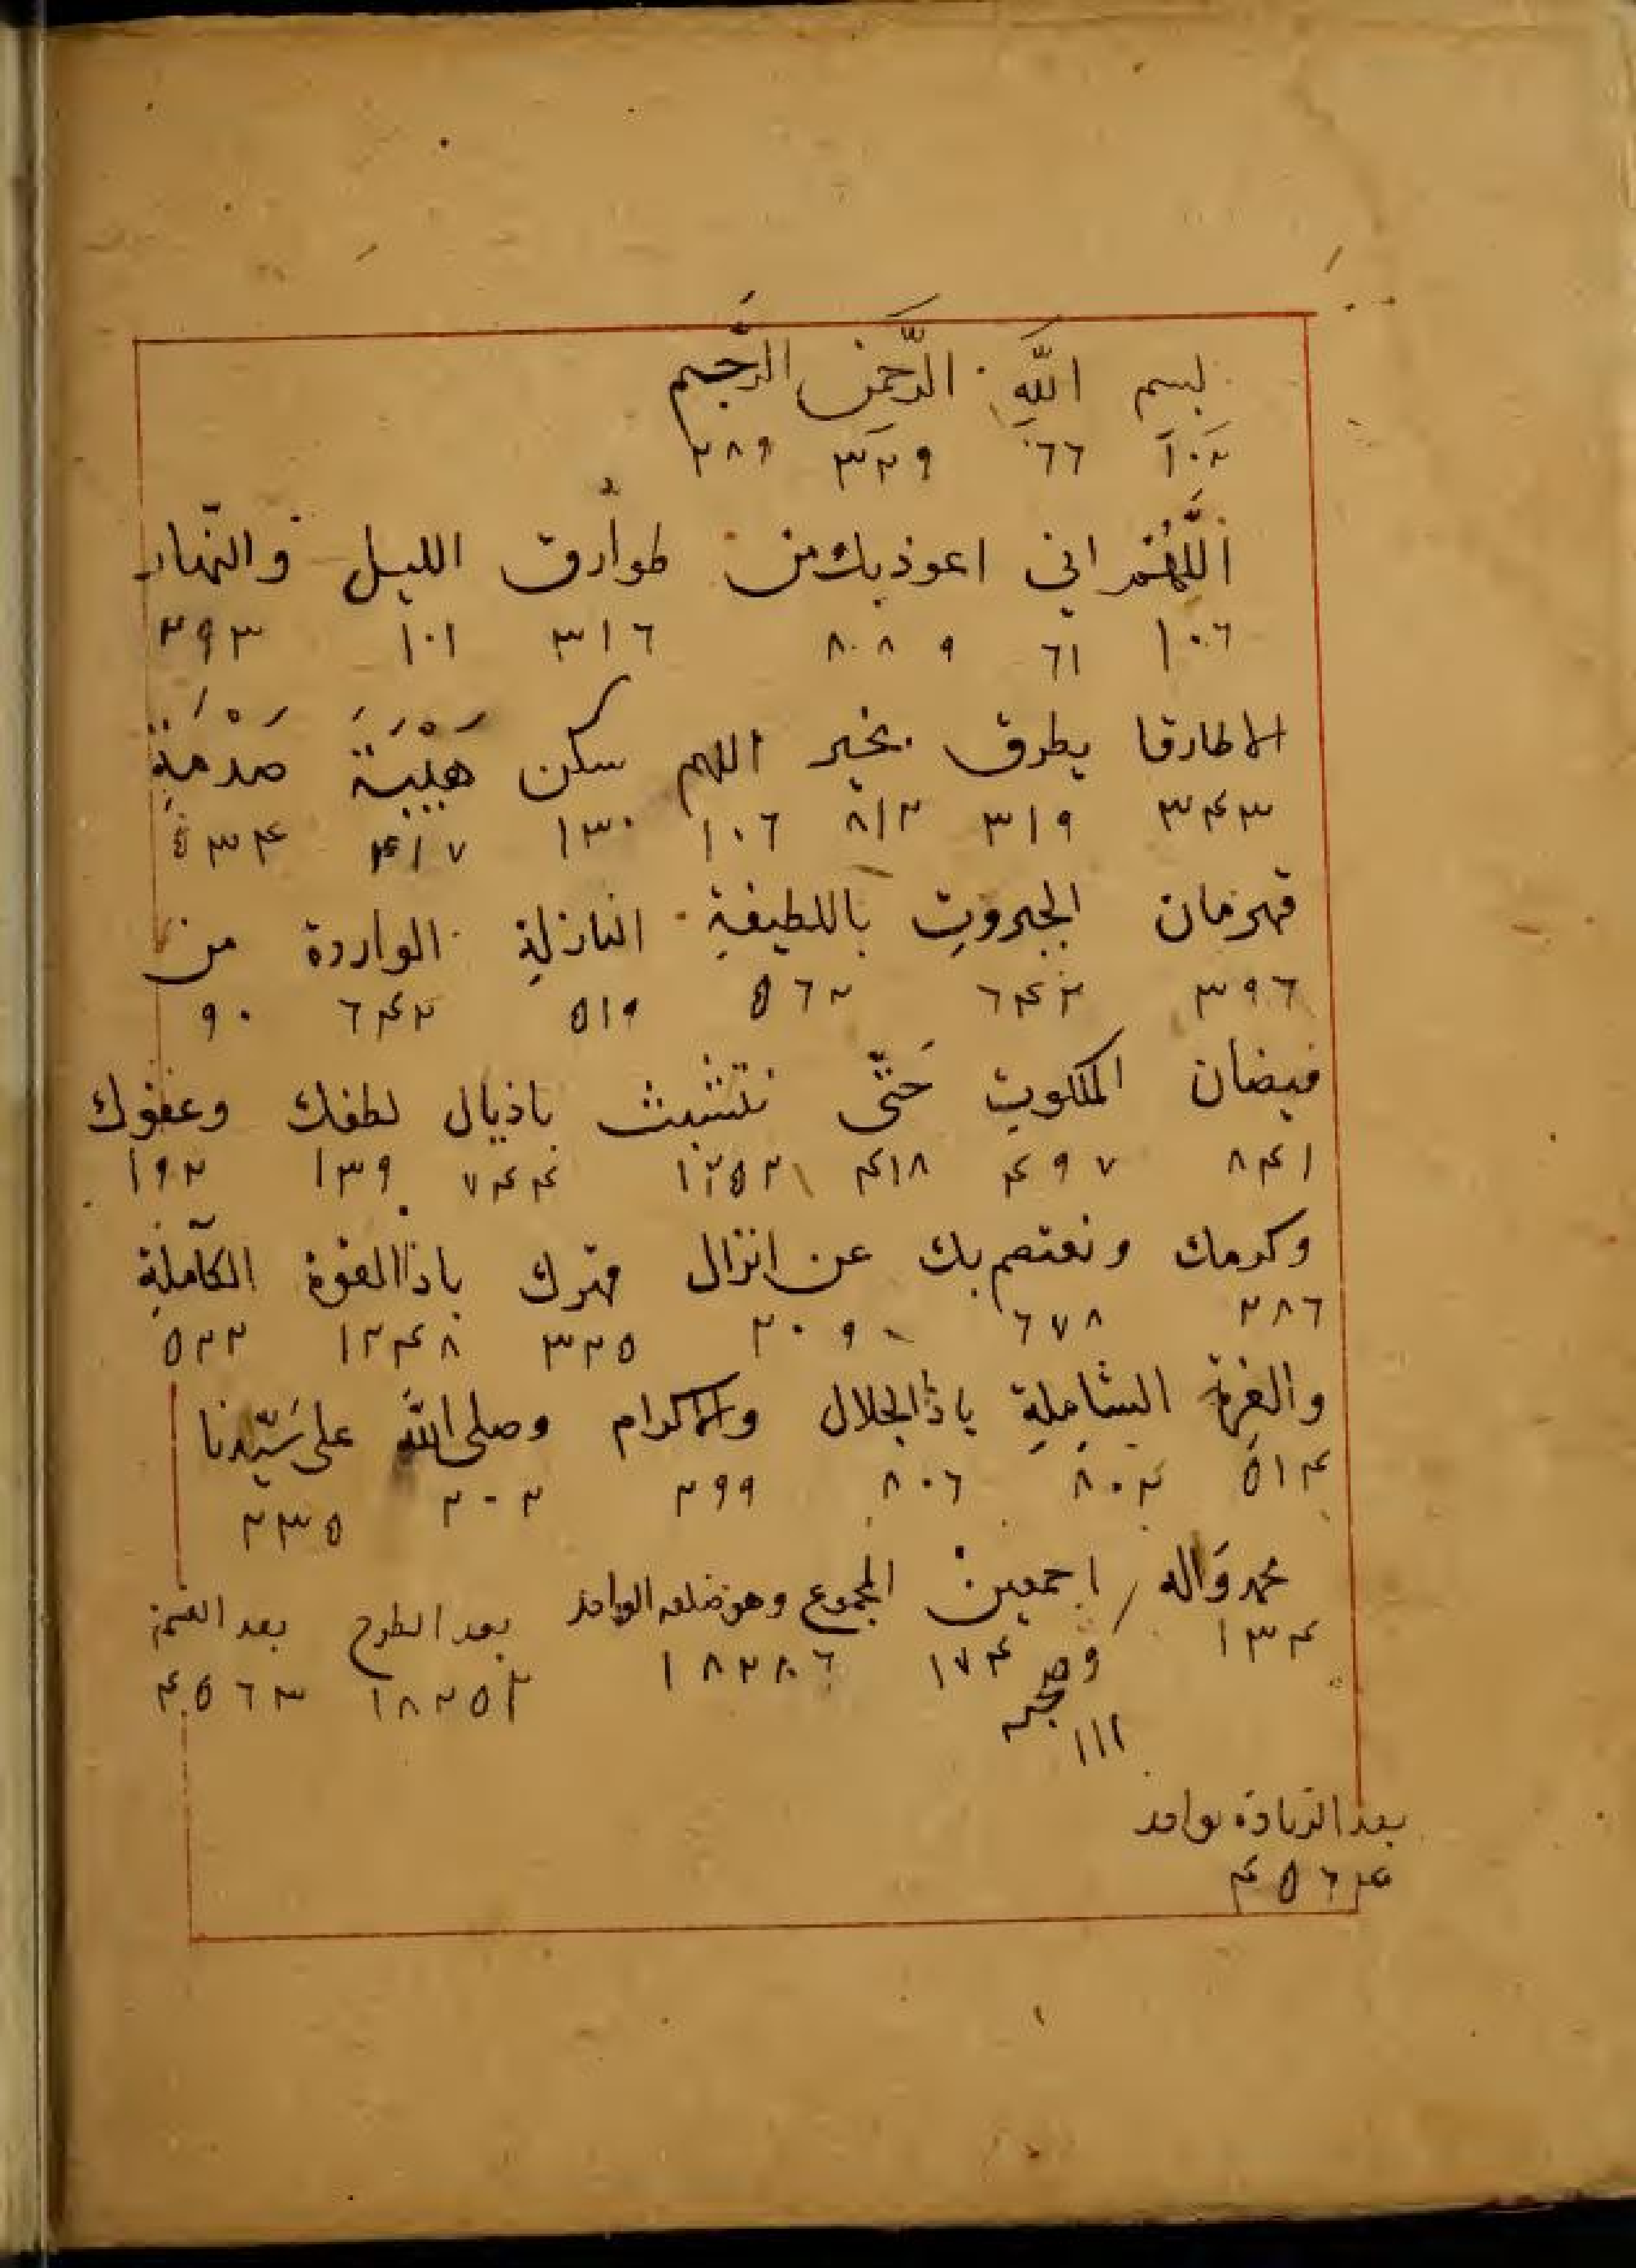 بسم اللّٰهِ الرَّحمَن الرَّحیم
١٠٢ ٦٦ ٣٢٩ ٢٨٩
اَللّٰهُمَّ اني اعوذ بك من طوارق الليل والنّهار
١٠٦ ٦١ ٨٠٨٩ ٣١٦ ١٠١ ٢٩٣
الا طارقا يطرق بخير اللهم سكن هَيْبَةَ صَدْمَةِ
٣٤٣ ٣١٩ ٨١٢ ١٠٦ ١٣٠ ٤١٧ ٥٣٤
قهرمان الجبروتِ باللطيفةِ النازلةِ الواردة من
٣٩٦ ٦٤٢ ٥٦٢ ٥١٩ ٦٤٢ ٩٠
فيضان الملكوتِ حَتّى نتشبث باذيال لطفك وعفوك
٨٤١ ٤٩٧ ٤١٨ ١٢٥٢ ٧٤٤ ١٣٩ ١٩٢
وكرمك ونعتصم بك عن انزال قهرك ياذا القوة الكاملةِ
٢٨٦ ٦٧٨ ٢٠٩ ٣٢٥ ١٢٤٨ ٥٢٢
والقدرة الشاملةِ ياذا الجلال والاكرام وصلى اللّٰه على سَيّدنا
٥١٤ ٨٠٢ ٨٠٦ ٢٩٩ ٢٠٢ ٢٣٥
محمد وَاله اجمعين المجموع وهو ضلعه الواحد بعد الطرح بعد القسمة
١٣٤ ١٧٤ ١٨٢٨٦ ١٨٢٥٢ ٤٥٦٣
وصحبه
١١١
بعد الزيادة بواحد
٤٥٦٤